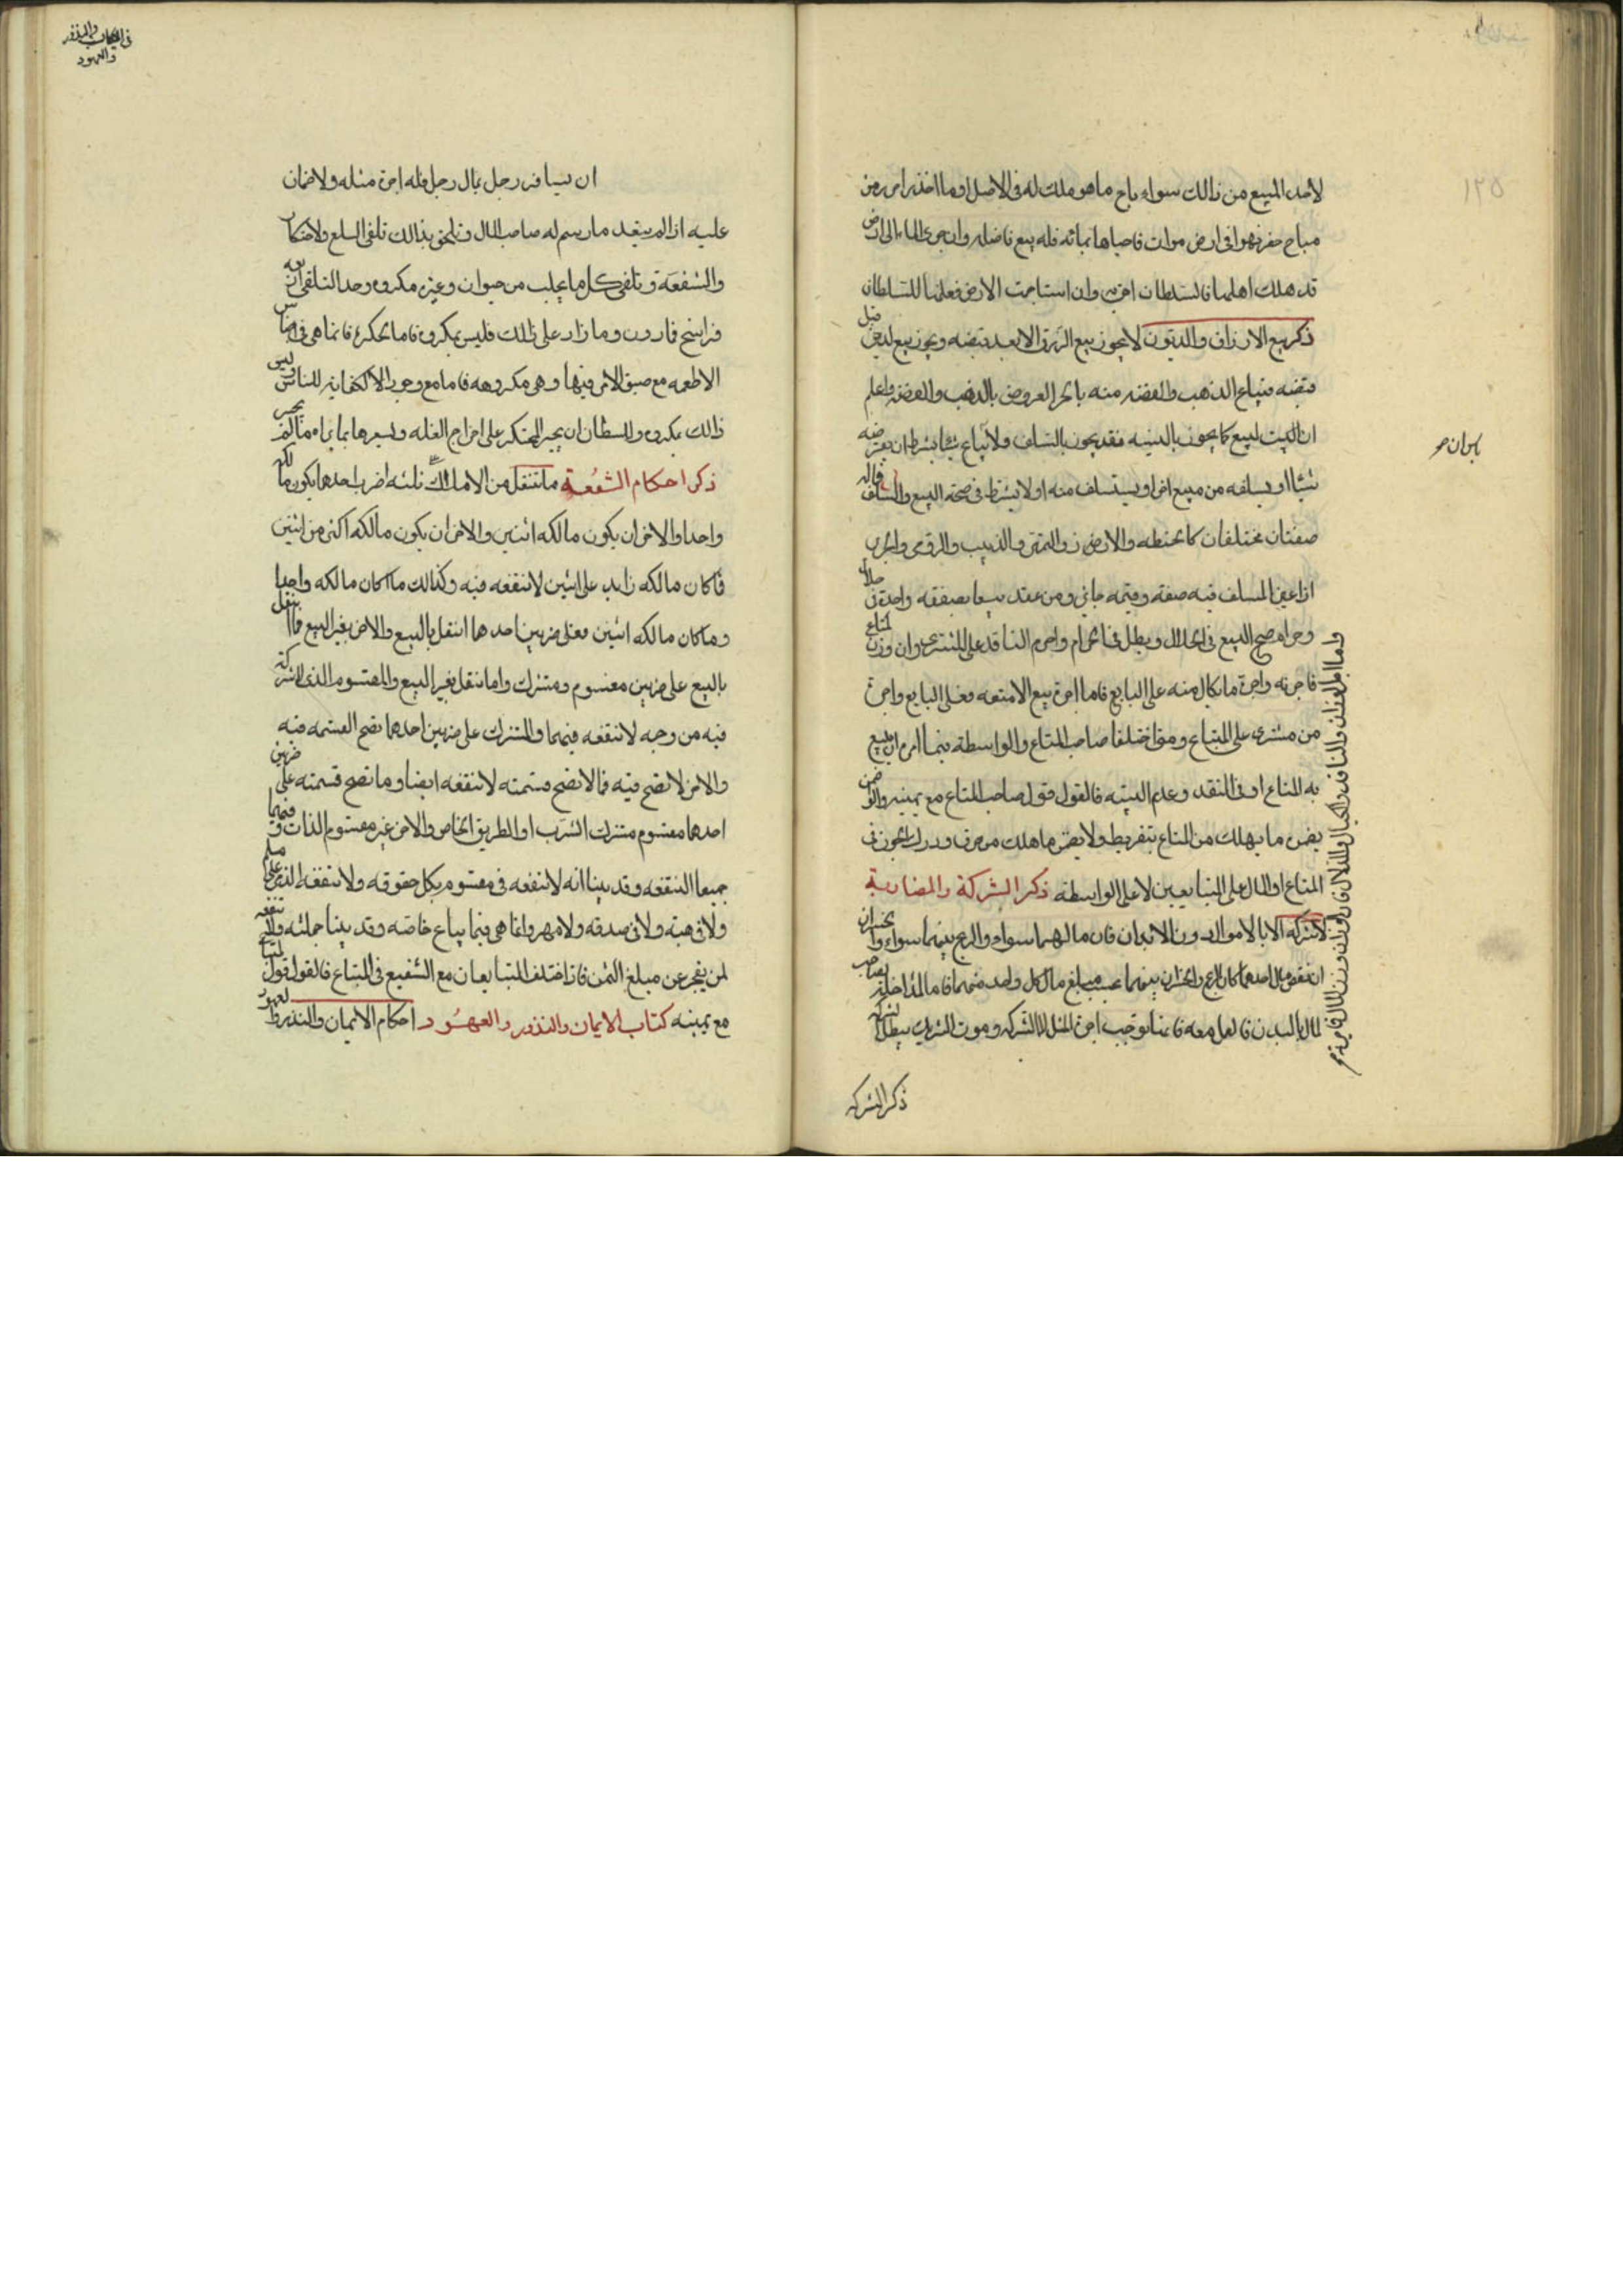 ١٢٥
لاحد المبيع من ذالك سواء باع ما هو ملك له فى الاصل او ما اخذه من
مباح حفر نهرا فى ارض موات فاحياها بمائه فله بيع فاضله وان جرى الماء الى ارض
قد هلك اهلها فالسلطان احق به وان استاجرت الارض فعلها للسلطان
ذكر بيع الارزاق والديون لا يجوز بيع الرزق الا بعد قبضه ويجوز بيع الدين قبل
قبضه فيباع الذهب والفضه منه بالعروض بالذهب والفضه واعلم
ان البيع كما يجوز بالنسيه فقد يجوز بالسلف ولا يباع شيئا بشرط ان يقرضه
شيئا او يسلفه من مبيع اخر او يستسلف منه او لا يشترط فى صحة البيع والسلف
صفتان مختلفان كالحنطه والارز والتمر والزبيب والروى والحرير
اذا عين المسلف فيه صفه وقيمه جايز ومن عقد بيعا بصفقه واحدة فى حلال
وحرام صح البيع فى الحلال وبطل فى الحرام واجره الناقد على المشترى وان وزن المتاع
فاجرته واجرة ما يكال منه على البايع فاما اجرة بيع الامتعه فعلى البايع واجرة
من مشترى على المبتاع ومتى اختلفا صاحب المتاع والواسطة فيما امره ان يبيع
به المتاع او فى النقد وعدم البينه فالقول قول صاحب المتاع مع يمينه والواسطه ضمن
يضمن ما يهلك من المتاع بتفريطه ولا يضمن ما هلك من حرزه ودرك العيوب فى
المتاع او المال على المتبايعين لا على الواسطه ذكر الشركة والمضاربة
لا شركه الا بالاموال دون الابدان فان مالهما سواء والربح بينهما سواء والخسران
ان تفضل مال احدهما كان الربح والخسران بينهما بحسب مبلغ مال كل واحد منهما فاما المضاربه
المال بالبدن فالعامل معه فانما توجب اجرة المثل لا الشركه وموت الشريك يبطل الشركه
واما اجرة الوزان والناقد والكيال والدلال فان وزن المال
بايران
ذكر الشركه
فى الايمان والنذور
والعهود
ان يسافر رجل بمال رجل فله اجرة مثله ولا ضمان
عليه اذا لم يتعد ما رسم له صاحب المال ويلحق بذالك تلقى السلع والاحتكار
والشفعة وتلقى كل ما يجلب من حيوان وغيره مكروه وحد التلقى اربعه
فراسخ فما دون وما زاد على ذلك فليس بمكروه فاما الحكرة فانما هى فى اجناس
الاطعمه مع ضيق الامر فيها وهى مكروهه فاما مع وجود الكفايه للناس فليس
ذالك بمكروه وللسطان ان يجبر المحتكر على اخراج الغله ويسعرها بما يراه ما لم يخسر
ذكر احكام الشفعة ما تنتقل من الاملاك ثلثه اضرب احدها يكون مالكه
واحدا والاخر ان يكون مالكه اثنين والاخر ان يكون مالكه اكثر من اثنين
فما كان مالكه زايد على اثنين لا شفعه فيه وكذالك ما كان مالكه واحدا
وما كان مالكه اثنين فعلى ضربين احدهما انتقل بالبيع والاخر بغير البيع فما انتقل
بالبيع على ضربين مقسوم ومشترك واما نتقل بغير البيع والمقسوم الذى لا شركة
فيه من وجه لا شفعه فيهما والمشترك على ضربين احدهما تصح القسمه فيه
والاخر لا تصح فيه فما لا تصح قسمته لا شفعه ايضا وما تصح قسمته على ضربين
احدهما مقسوم مشترك الشرب او الطريق الخاص والاخر غير مقسوم الذات وفيهما
جميعا الشفعه وقد بينا انه لا شفعه فى مقسوم بكل حقوقه ولا شفعه لذمى على مسلم
ولا فى هبته ولا فى صدقه ولا مهر وانما هى فيما يباع خاصه وقد بينا جملته ولا شفعه
لمن يعجز عن مبلغ الثمن فاذا اختلف المتبايعان مع الشفيع فى المبتاع فالقول قول المبتاع
مع يمينه كتاب الايمان والنذور والعهود احكام الايمان والنذور والعهود